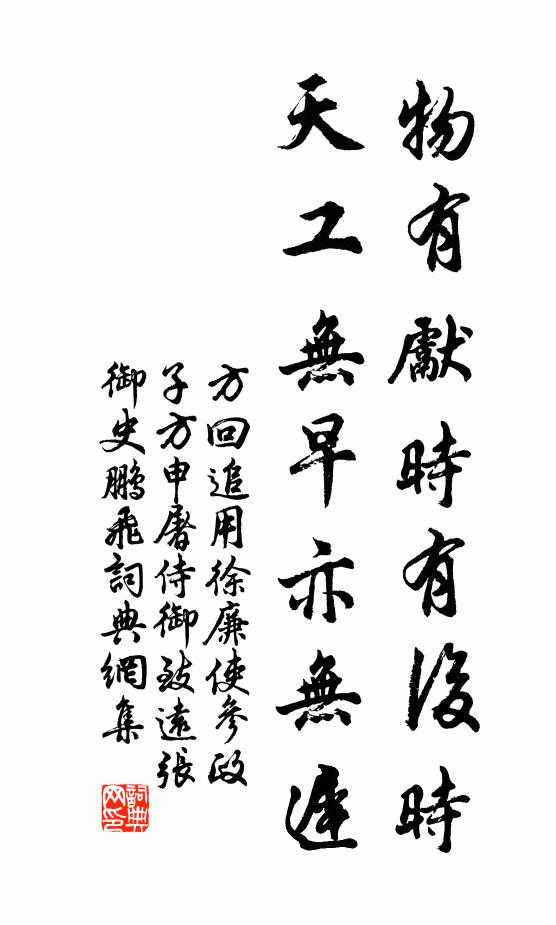 物有獻時有後時
天工無早亦無遲
方回追用徐廉使參政
子方申屠侍御致遠張
御史鵬飛詞典網集
詞典
网印